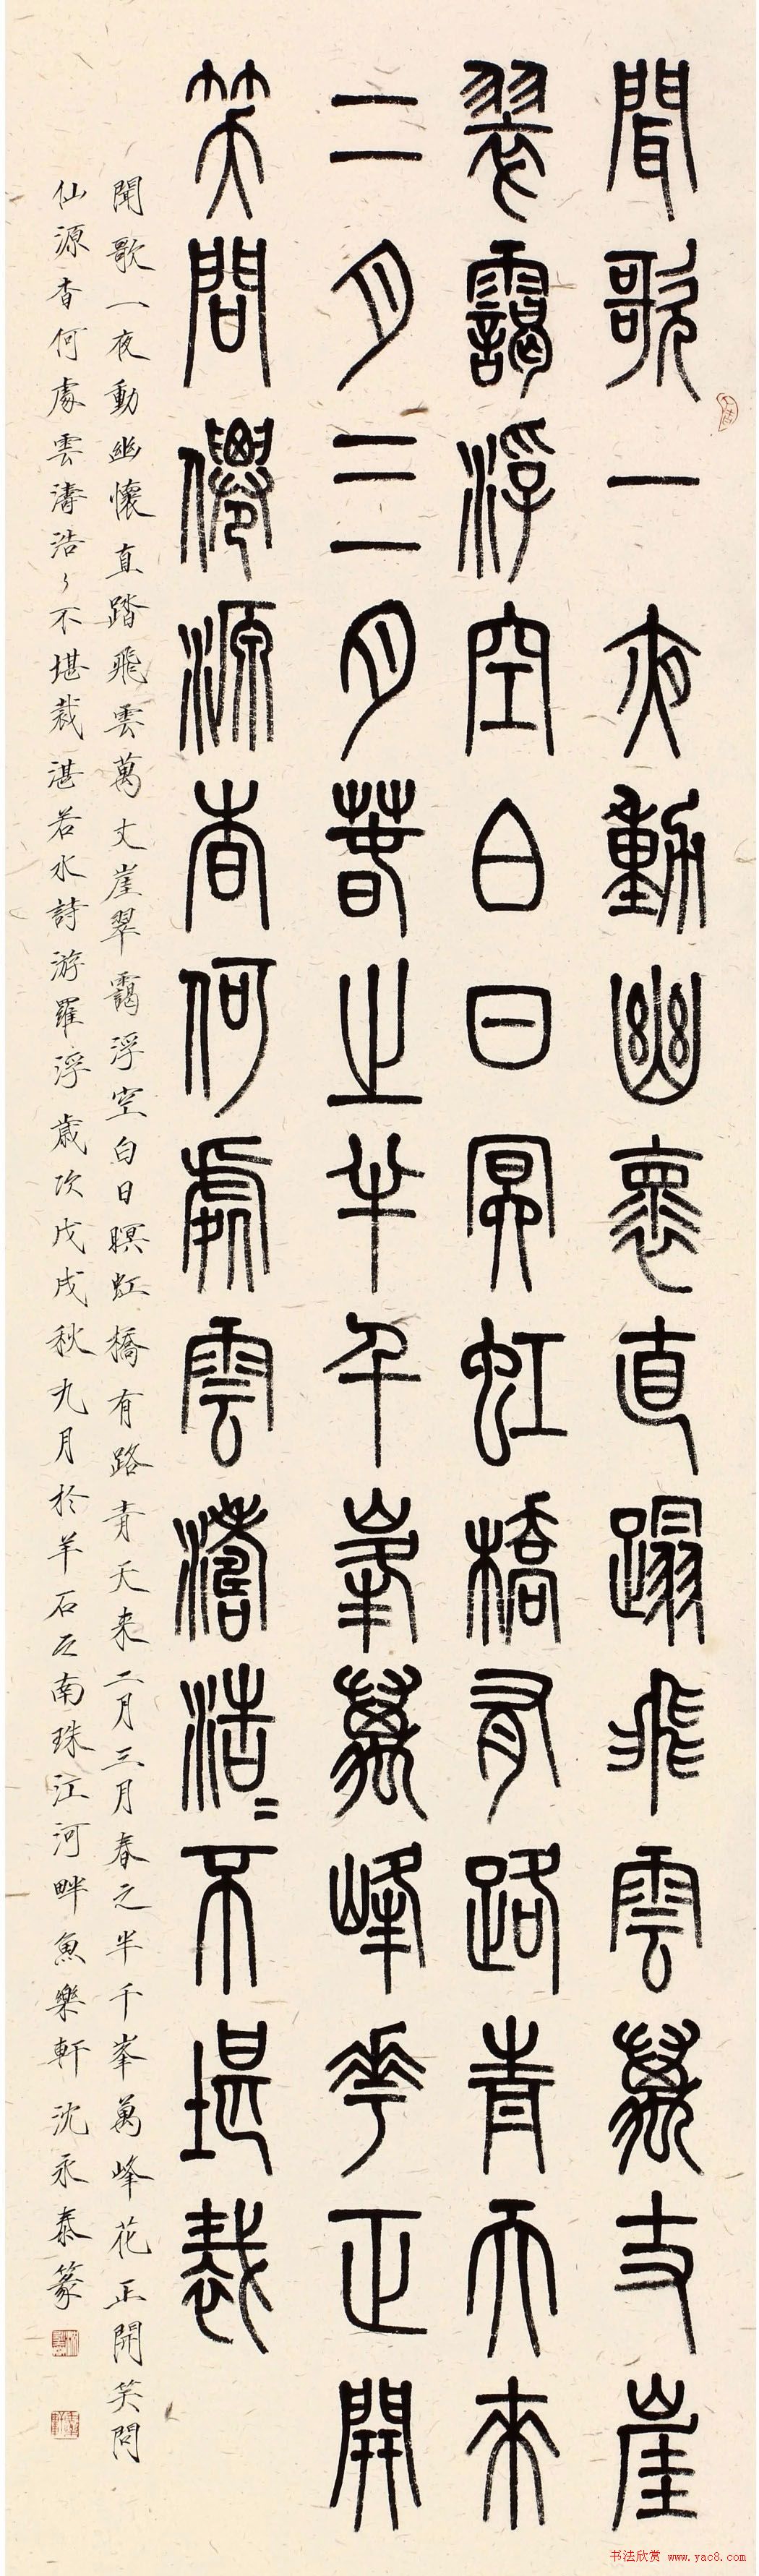 聞歌一夜動幽褱直蹋飛雲萬丈崖
翠靄浮空白日冥虹橋有路青天來
二月三月春之半千峯萬峰華正開
笑問僊源杳何處雲濤浩〻不堪裁
聞歌一夜動幽懷直踏飛雲萬丈崖翠靄浮空白日暝虹橋有路青天来二月三月春之半千峯萬峰花正開笑問
仙源杳何處雲濤浩々不堪裁湛若水詩游羅浮歲次戊戌秋九月於羊石之南珠江河畔魚樂軒沈永泰篆
书法欣赏 www.yac8.com